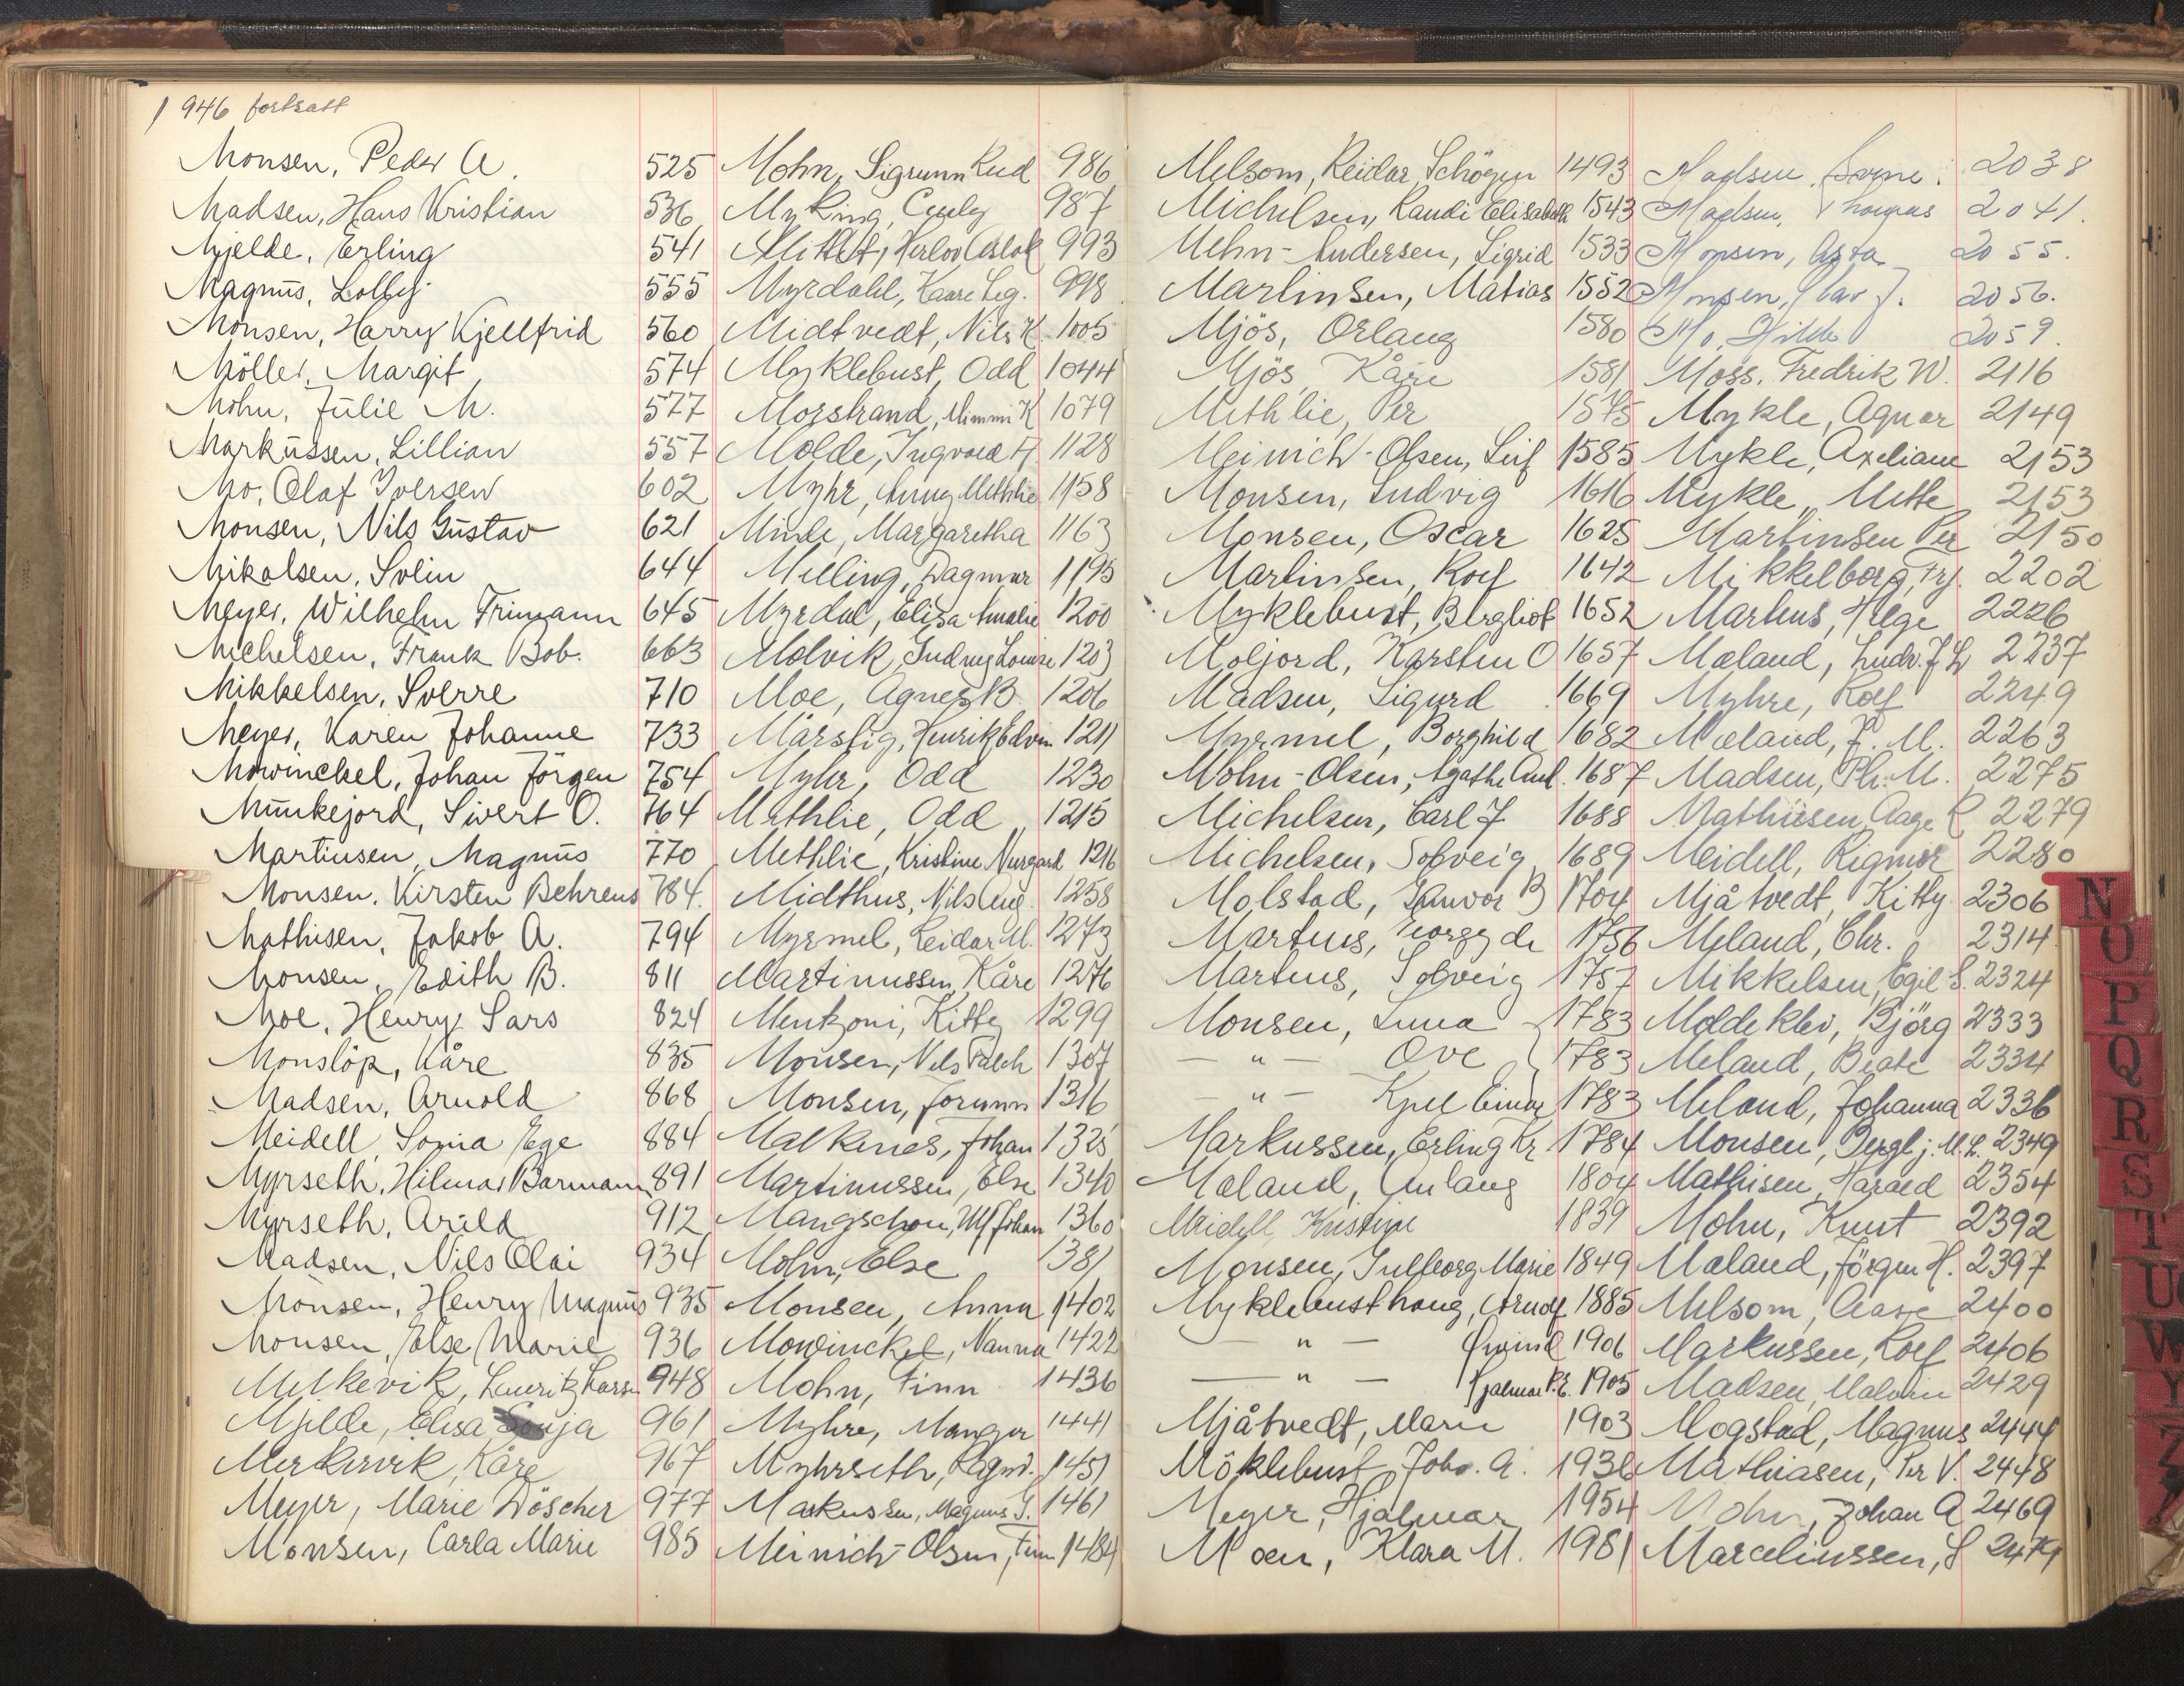 1946 fortsatt
Monsen, Peder A. 525
Madsen, Hans Kristian 536
Mjelde, Erling 541
Magnus, Lolly 555
Monsen, Harry Kjellfrid 560
Möller, Margit 574
Mohn, Julie M. 577
Markussen, Lillian 557
Mo, Olaf Iversen 602
Monsen, Nils Gustav 621
Mikalsen, Svein 644
Meyer, Wilhelm Frimann 645
Michelsen, Frank Bob. 663
Mikkelsen, Sverre 710
Meyer, Karen Johanne 733
Mowinckel, Johan Jörgen 754
Munkejord, Sivert O. 764
Martinsen, Magnus 770
Monsen, Kirsten Behrens 784.
Mathisen, Jakob A. 794
Monsen, Edith B. 811
Moe, Henry Lars 824
Monslöp, Kåre 835
Madsen, Arnold 868
Meidell, Sonia Ege 884
Myrseth, Hilmar Barmann 891
Myrseth, Arild 912
Madsen, Nils Olai 934
Monsen, Henry Magnus 935
Monsen, Else Marie 936
Melkevik, Lauritz Larsen 948
Mjelde, Elisa 961
Merkesvik, Kåre 967
Meyer, Marie Döscher 977
Monsen, Carla Marie 985
Mohn, Sigrunn Rud 986
Myking, Cecily 987
Herlov Aslak 993
Myrdahl, Kaare Leg. 998
Midtvedt, Nils K. 1005
Myklebust, Odd 1044
Morstrand, Mimmi K 1079
Molde, Ingvald A. 1128
Myhr, Anny Methlie 1158
Milde, Margaretha 1163
Melling, Dagmar 1195
Myrdal, Elisa Amalie 1200
Molvik, Gudny Louise 1203
Moe, Agnes B. 1206
Mårstig, Henrik Edvin 1211
Myhr, Odd 1230
Methlie, Odd 1215
Methlie, Kristine Nurgard 1216
Midthus, Nils Aug. 1258
Myrmel, Reidar M. 1273
Martinussen, Kåre 1276
Mentzoni, Kitty 1299
Monsen, Nils Falch 1307
Monsen, Jorunn 1316
Malkenes, Johan 1325
Martinussen, Else 1340
Mangschou, Ulf Johan 1360
Mohn, Else 1381
Monsen, Anna 1402
Mowinckel, Nanna 1422
Mohn, Finn 1436
Myhre, Manger 1441
Myhrseth, Ragnv. 1451
Markussen, Magnus J. 1461
Meinich-Olsen, Finn 1484
Melsom, Reidar Schögen 1493
Michelsen, Randi Elisabeth 1543
Mehn-Andersen, Sigrid 1533
Martinsen, Matias 1552
Mjös, Orlaug 1580
Mjös, Kåre 1581
Methlie, Per 1575
Meinich-Olsen, Leif 1585
Monsen, Ludvig 1616
Monsen, Oscar 1625
Martinsen, Rolf 1642
Myklebust, Bergliot 1652
Moljord, Karsten O 1657
Madsen, Sigurd 1669
Myrmel, Borghild 1682
Mohn-Olsen, Agathe Aml. 1687
Michelsen, Carl J 1688
Michelsen, Solveig 1689
Molstad, Gunvor B 1704
Martens, Georg de 1756
Martens, Solveig 1757
Monsen, Luua 1783
— " — Ove 1783
— " — Kjell Einar 1783
Markussen, Erling Kr. 1784
Mæland, Anlaug 1804
Meidell, Kristine 1839
Monsen, Ingeborg Marie 1849
Myklebusthaug, Arnolf 1885
— " — Øivind 1906
— " — Hjalmar P.E. 1905
Mjåtvedt, Marie 1903
Möklebust, Johs. A. 1936
Meyer, Hjalmar 1954
Moen, Klara M. 1981
Madsen, 2038
Madsen, Thomas 2041.
Monsen, Asta 2055.
Monsen, Olav J. 2056.
Mo, Hilde 2059.
Moss, Fredrik W. 2116
Mykle, Agnar 2149
Mykle, Axeliane 2153
Mykle, Mette 2153
Martinsen Per 2150
Mikkelborg, Frj. 2202
Martens, Helge 2226
Mæland, Ludv. J L 2237
Myhre, Rolf 2249
Mæland, J. M. 2263
Madsen, Ph. M. 2275
Mathiesen, Aage R 2279
Meidell, Rigmor 2280
Mjåtvedt, Kitty 2306
Meland, Chr. 2314
Mikkelsen, Egil S. 2324
Moldeklev, Björg 2333
Meland, Beate 2334
Meland, Johanna 2336
Monsen, Bergl j. M. L. 2349
Mathisen, Harald 2354
Mohn, Knut 2392
Mæland, Jörgen H. 2397
Melsom, Aase 2400
Markussen, Rolf 2406
Madsen, Malvin 2429
Mogstad, Magnus 2444
Mathiasen, Per V. 2448
Mohn, Johan A 2469
Marcelinssen, S 2479
N
O
P
Q
R
S
T
U
W
Y
Z